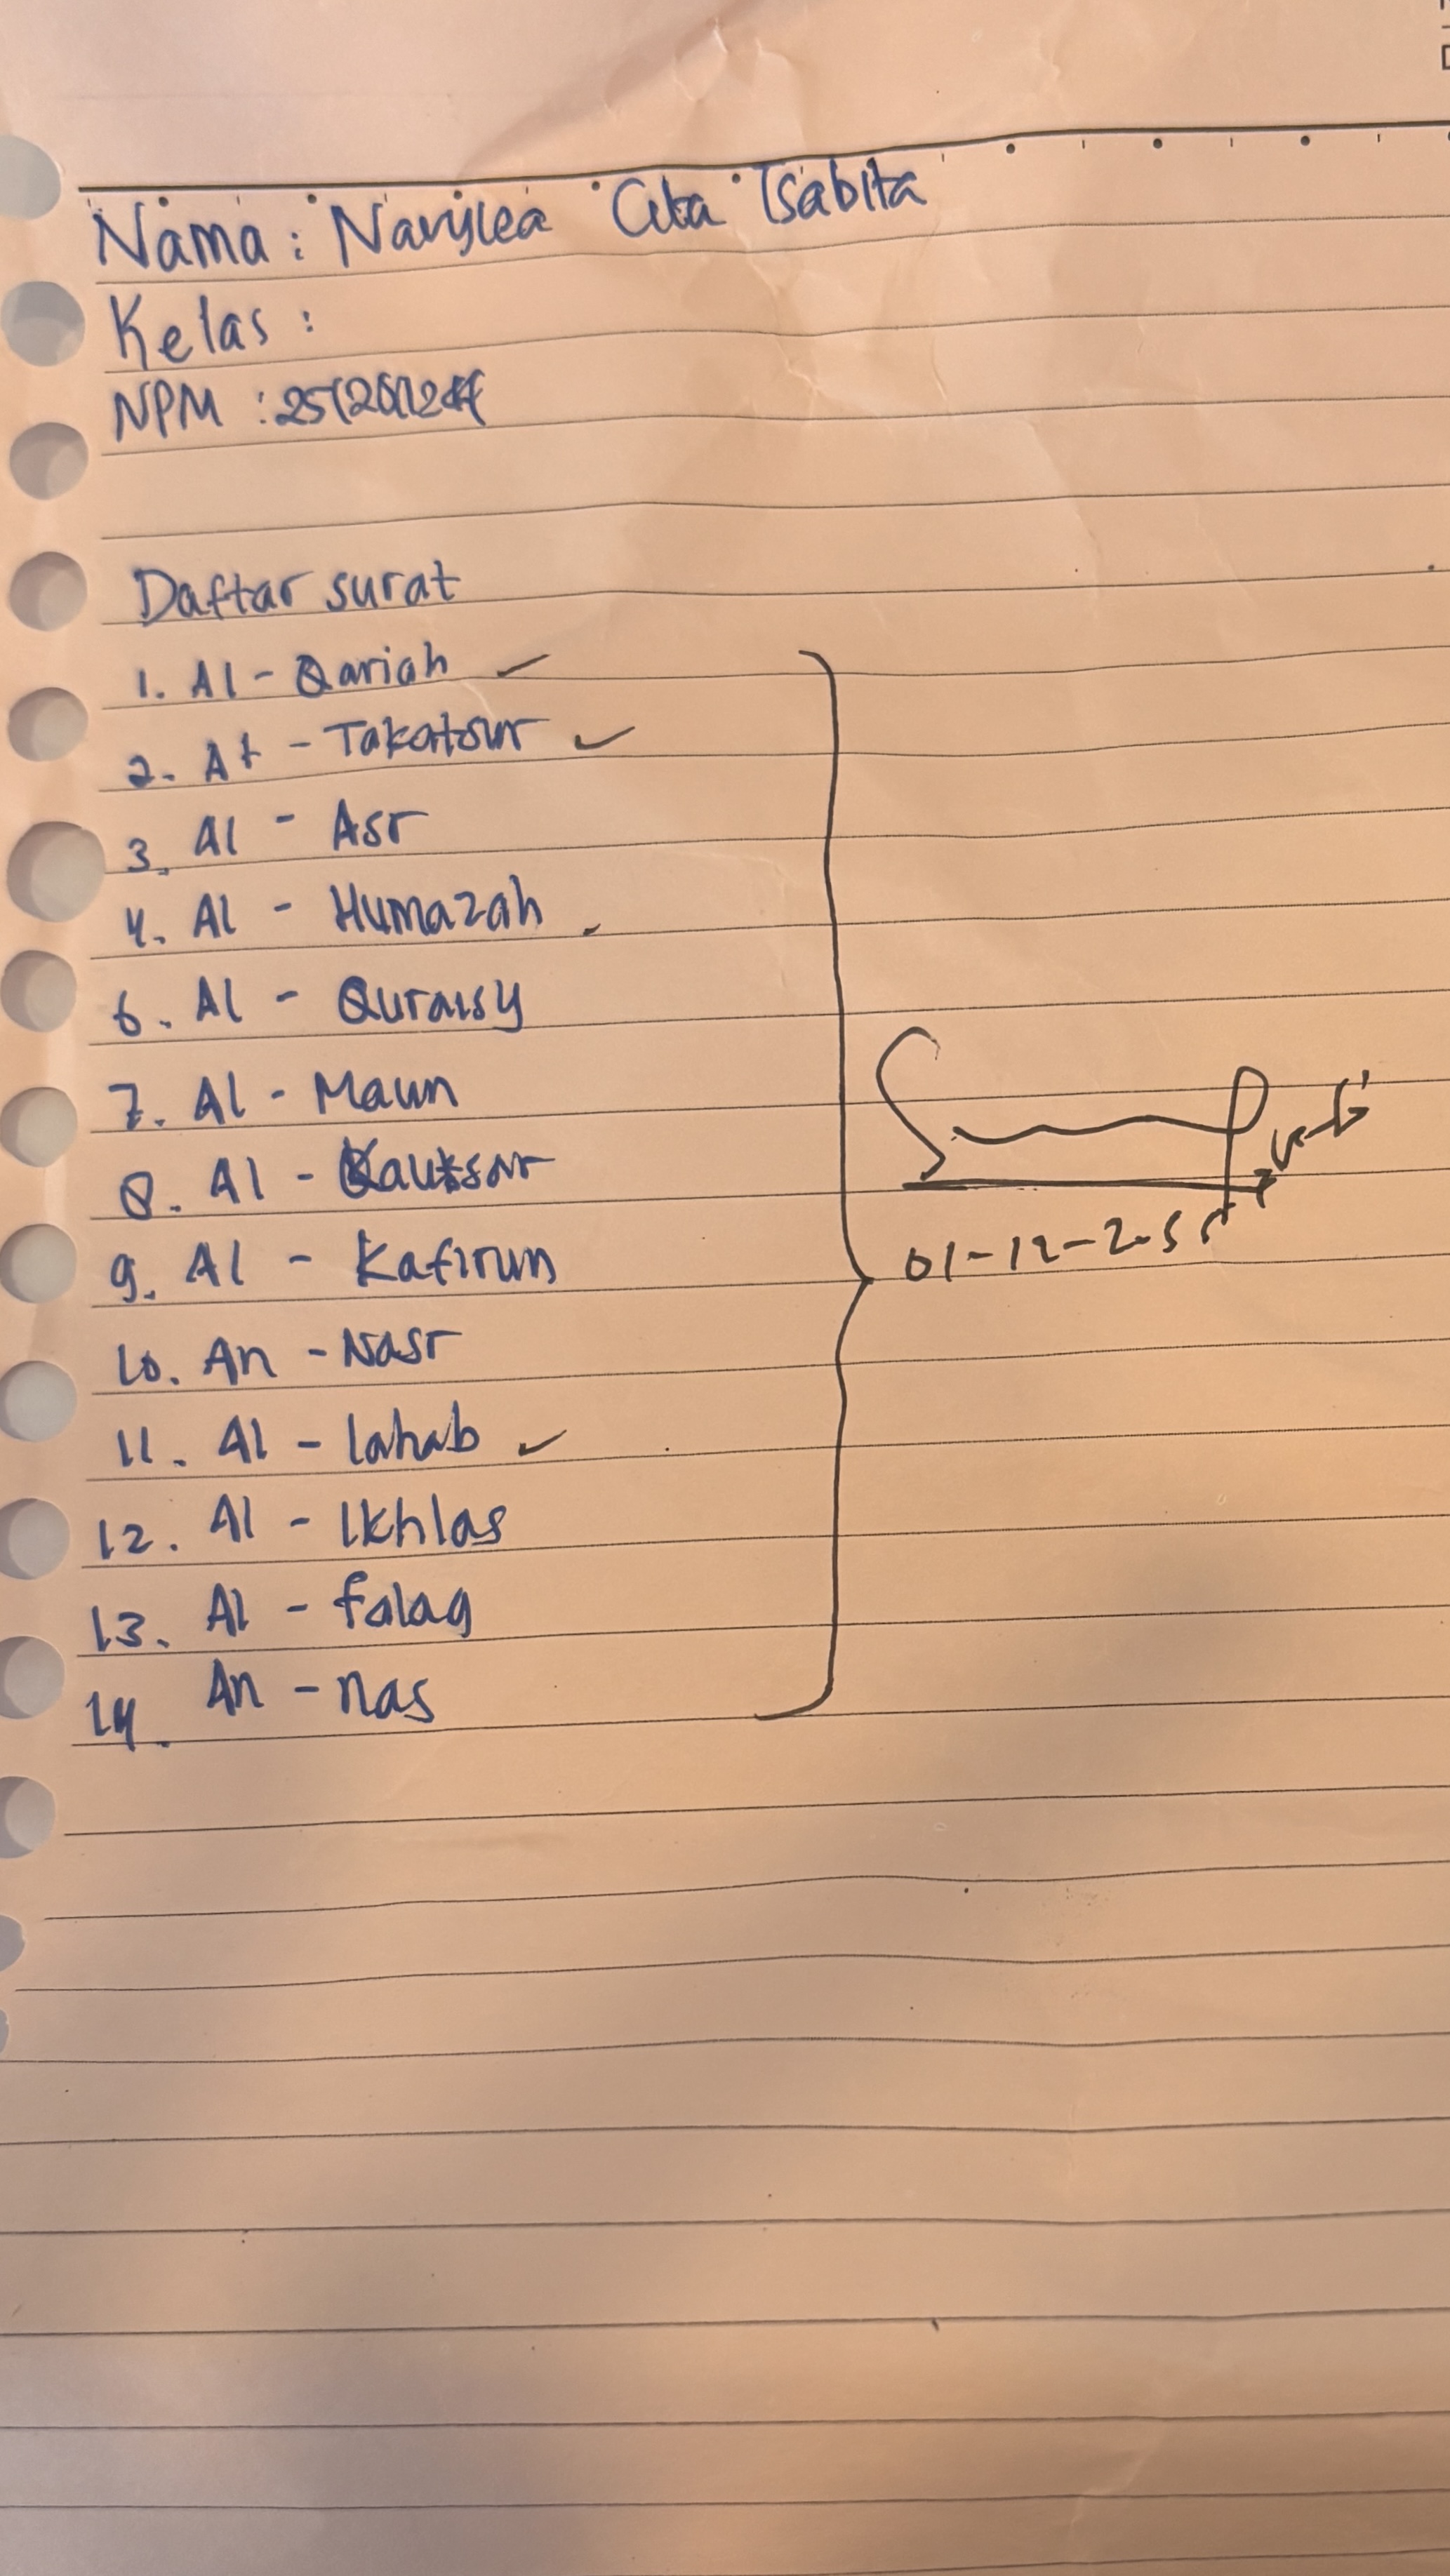 Nama : Navylea Cita Tsabita
Kelas :
NPM :
Daftar surat
1. Al - Qariah ✓
2. At - Takatsur ✓
3. Al - Asr
4. Al - Humazah
6. Al - Quraisy
7. Al - Maun
8. Al - Kautsar
9. Al - Kafirun
10. An - Nasr
11. Al - lahab ✓
12. Al - Ikhlas
13. Al - falaq
14. An - nas
01-12-2025